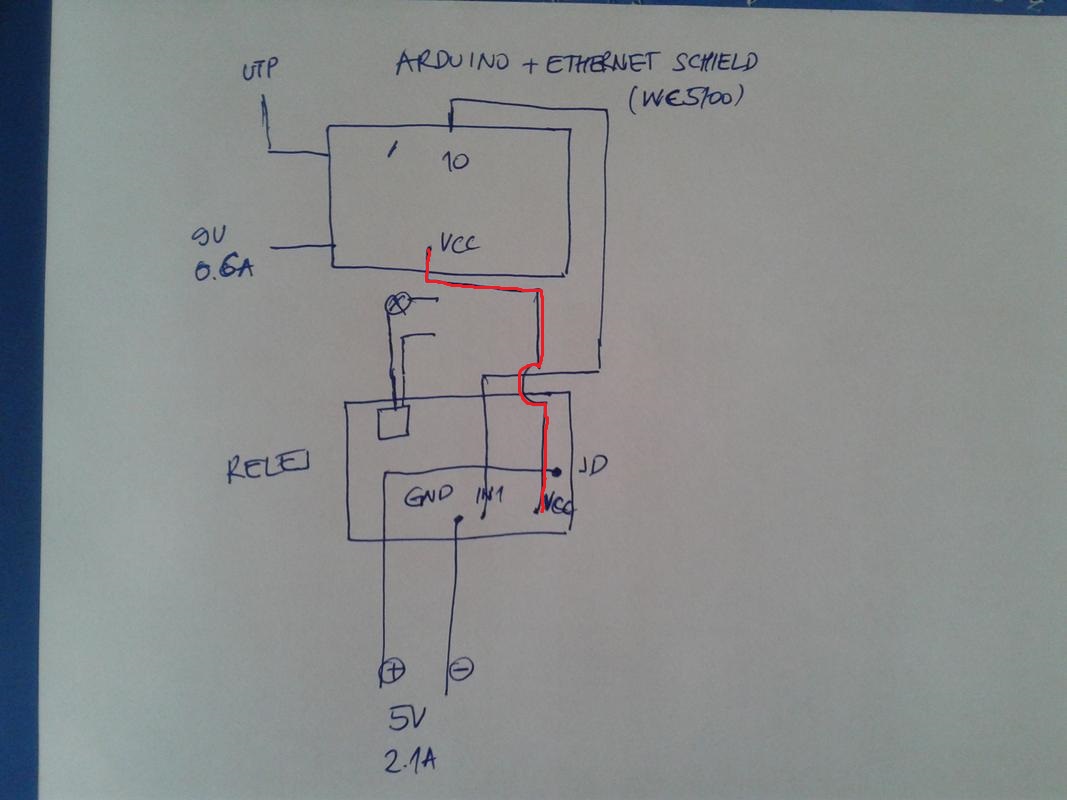 UTP
ARDUINO + ETHERNET SCHIELD
(WE5100)
10
9V
0.6A
VCC
RELEJ
JD
GND IN1 VCC
+ −
5V
2.1A